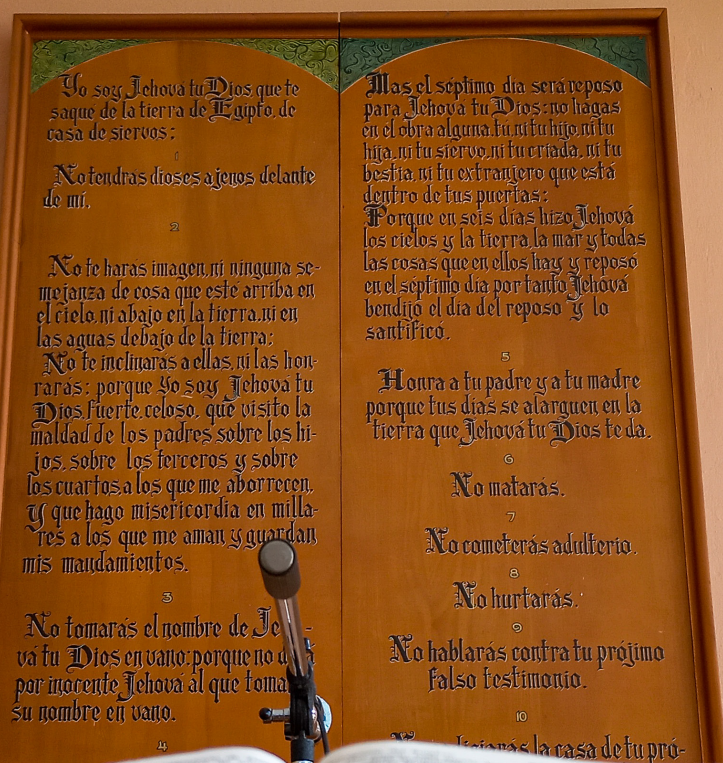 Yo soy Jehová tu Dios que te
saqué de la tierra de Egipto, de
casa de siervos:
1
No tendras dioses ajenos delante
de mi.
2
No te haras imagen, ni ninguna se-
mejanza de cosa que esté arriba en
el cielo, ni abajo en la tierra, ni en
las aguas debajo de la tierra;
No te inclinaras a ellas, ni las hon-
rarás; porque Yo soy Jehova tu
Dios, fuerte, celoso, que visito la
maldad de los padres sobre los hi-
jos, sobre los terceros y sobre
los cuartos, a los que me aborrecen,
Y que hago misericordia en milla-
res a los que me aman y guardan
mis mandamientos.
3
No tomarás el nombre de Je
vá tu Dios en vano: porque no
por inocente Jehová al que toma
su nombre en vano.
4
Mas el séptimo dia será reposo
para Jehova tu Dios: no hagas
en el obra alguna, tu, ni tu hijo, ni tu
hija, ni tu siervo, ni tu criada, ni tu
bestia, ni tu extranjero que está
dentro de tus puertas:
Porque en seis días hizo Jehová
los cielos y la tierra, la mar y todas
las cosas que en ellos hay y reposó
en el séptimo dia por tanto Jehóvá
bendijó el dia del reposo y lo
santificó.
5
Honra a tu padre y a tu madre
porque tus días se alarguen en la
tierra que Jehová tu Dios te da.
6
No matarás.
7
No cometerás adulterio.
8
No hurtarás.
9
No hablarás contra tu prójimo
falso testimonio.
10
la casa de tu pró-